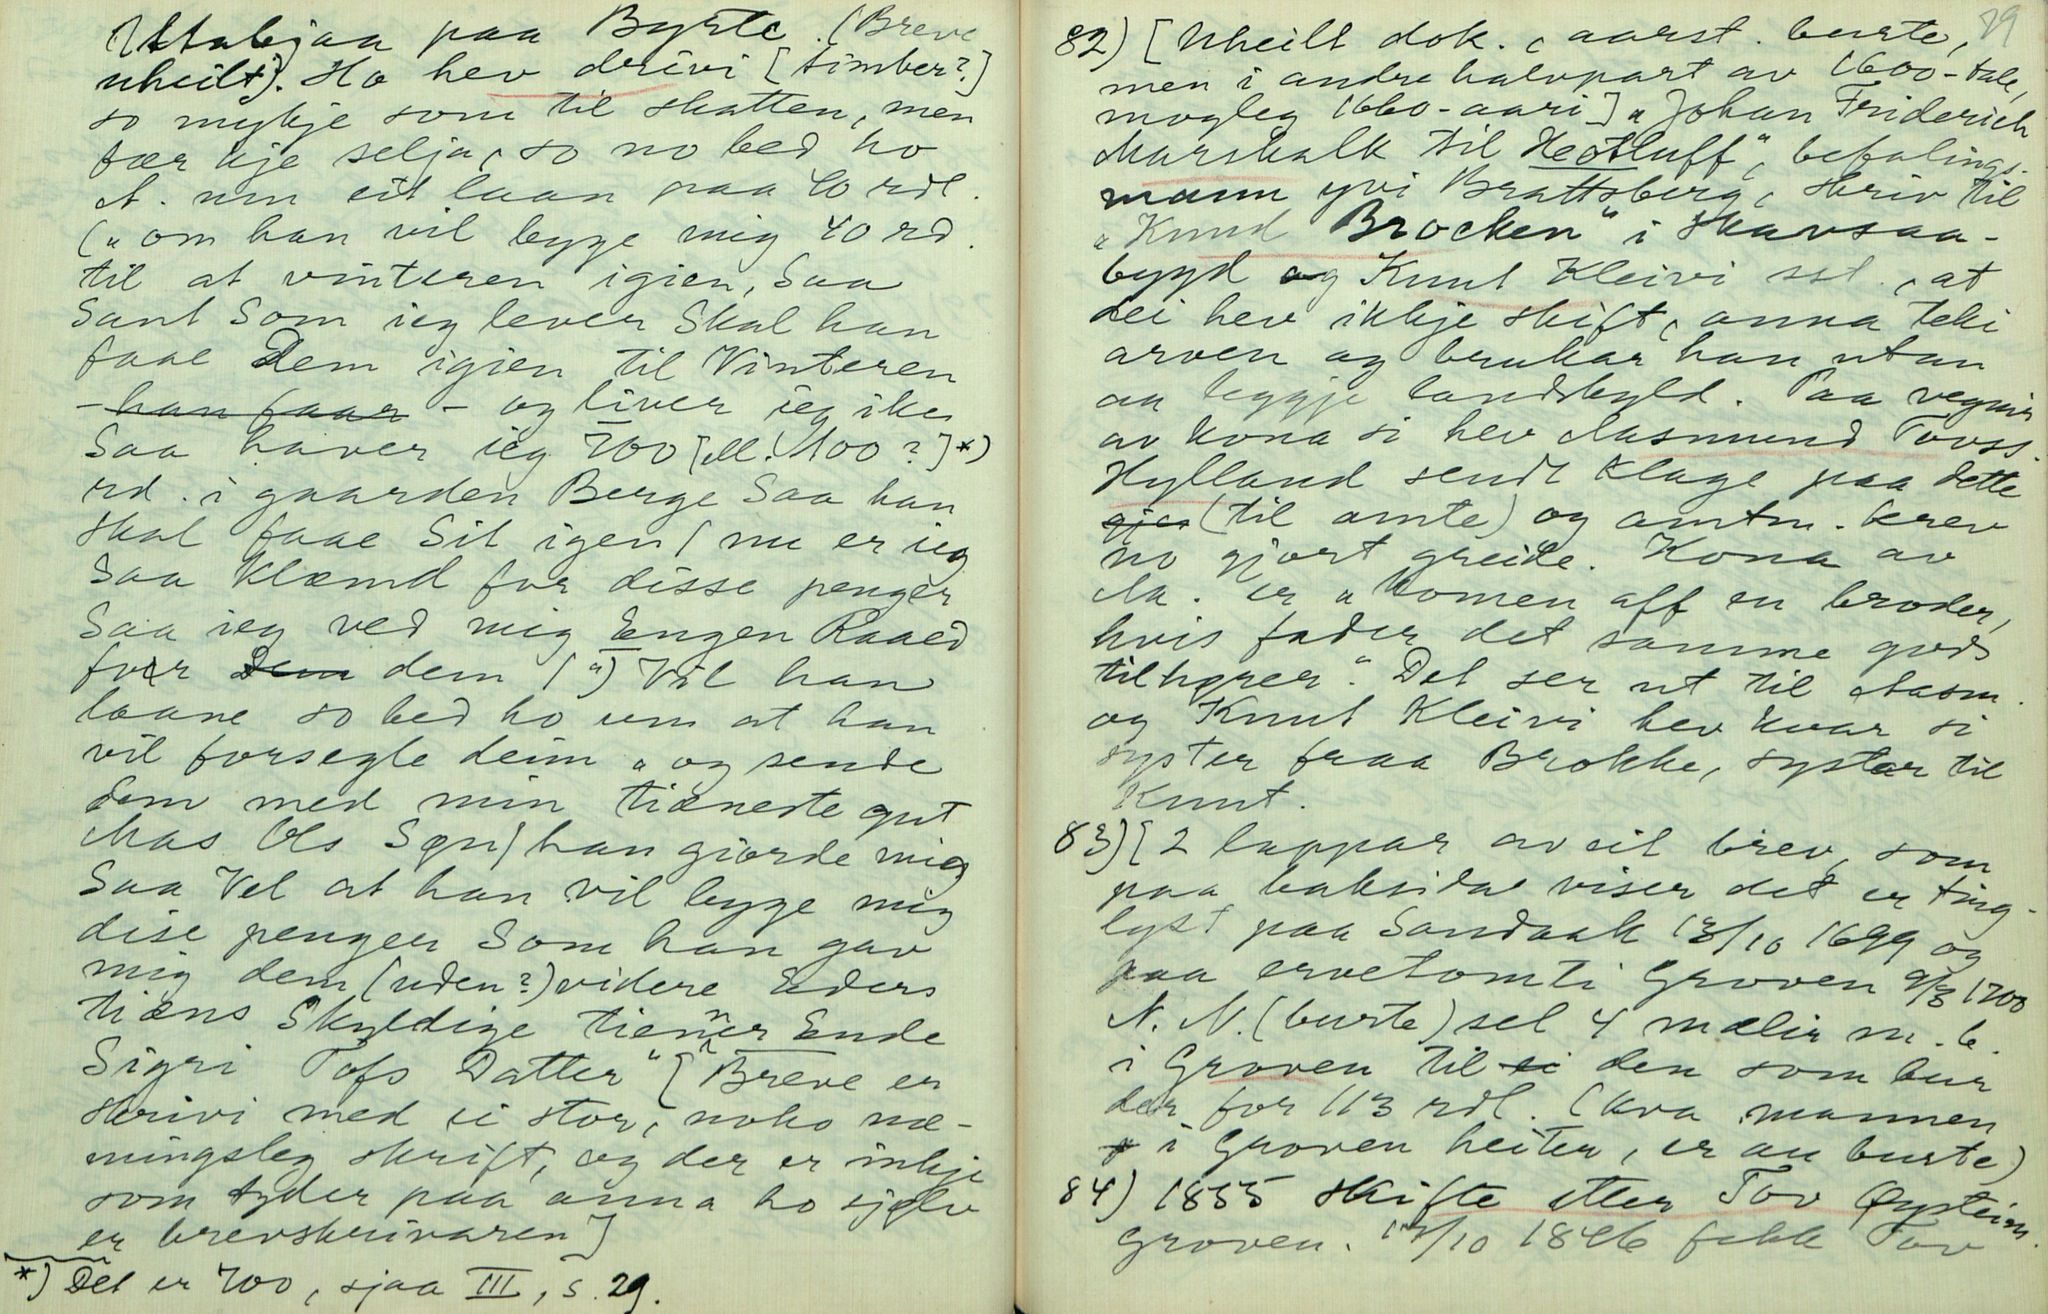 Stabjaa paa Byrte. (Breve
uheilt). Ho hev drivi [timber?]
so mykje som til skatten, men
fær kje selja, so no bed ho
A. um eit laan paa 40 rdl.
(„om han vil legge mig 40 rd.
til at vinteren igien, Saa
Sant Som ieg lever Skal han
faae Dem igien til Vinteren
- han faar - og liver ieg ike
Saa haver ieg 700 [ell. 100?] *)
rd. i gaarden Berge Saa han
skal faae Sit igen / nu er ieg
Saa Klæmd for disse penger
Saa ieg ved mig Engen Raaed
for Dem dem (") Vil han
laane so bed ho um at han
vil forsegle deim „og sende
dem med min tieneste gut
Aas Ols Søn / han giorde mig
Saa Vel at han vil legge mig
dise penger Som han gav
mig dem (uden?) videre Eders
tiens Skyldige tienner Ende
Sigri Tofs Datter" [Breve er
skrivi med ei stor, noko næ-
mingsleg skrift, og der er inkje
som tyder paa anna ho sjølv
er brevskrivaren]
*) Det er 700, sjaa III, s. 29.
79
82) [Uheilt dok., aarst. burte,
men i andre halvpart av 1600-tale,
mogleg 1660-aari] „Johan Friderich
Marskalk til Heotluff", befalings-
mann yvi Brattsberg, skriv til
„Knud Brocken" i Skavsaa-
bygd og Knut Kleivi sst., at
dei hev ikkje skift, anna teki
arven og brukar han utan
aa leggje landskyld. Paa vegnir
av kona si hev Aasmund Tovss.
Hylland sendt klage paa dette
gjer (til amte) og amtm. krev
no gjort greide. Kona av
Aa. er „komen aff en broder,
hvis fader det samme gods
tilhører". Det ser ut til Aasm.
og Knut Kleivi hev kvar si
syster fraa Brokke, systar til
Knut.
83) [2 lappar av eit brev, som
paa baksida viser det er ting-
lyst paa Sandaak 13/10 1699 og
paa ervetomti Groven 9/3 1700
N. N. (burte) sel 4 mælir m. b.
i Groven til ei den som bur
der for 113 rdl. (kva mannen
i Groven heiter, er au burte)
84) 1855 skifte etter Tov Øysteins.
Groven. 14/10 1846 fekk Tov